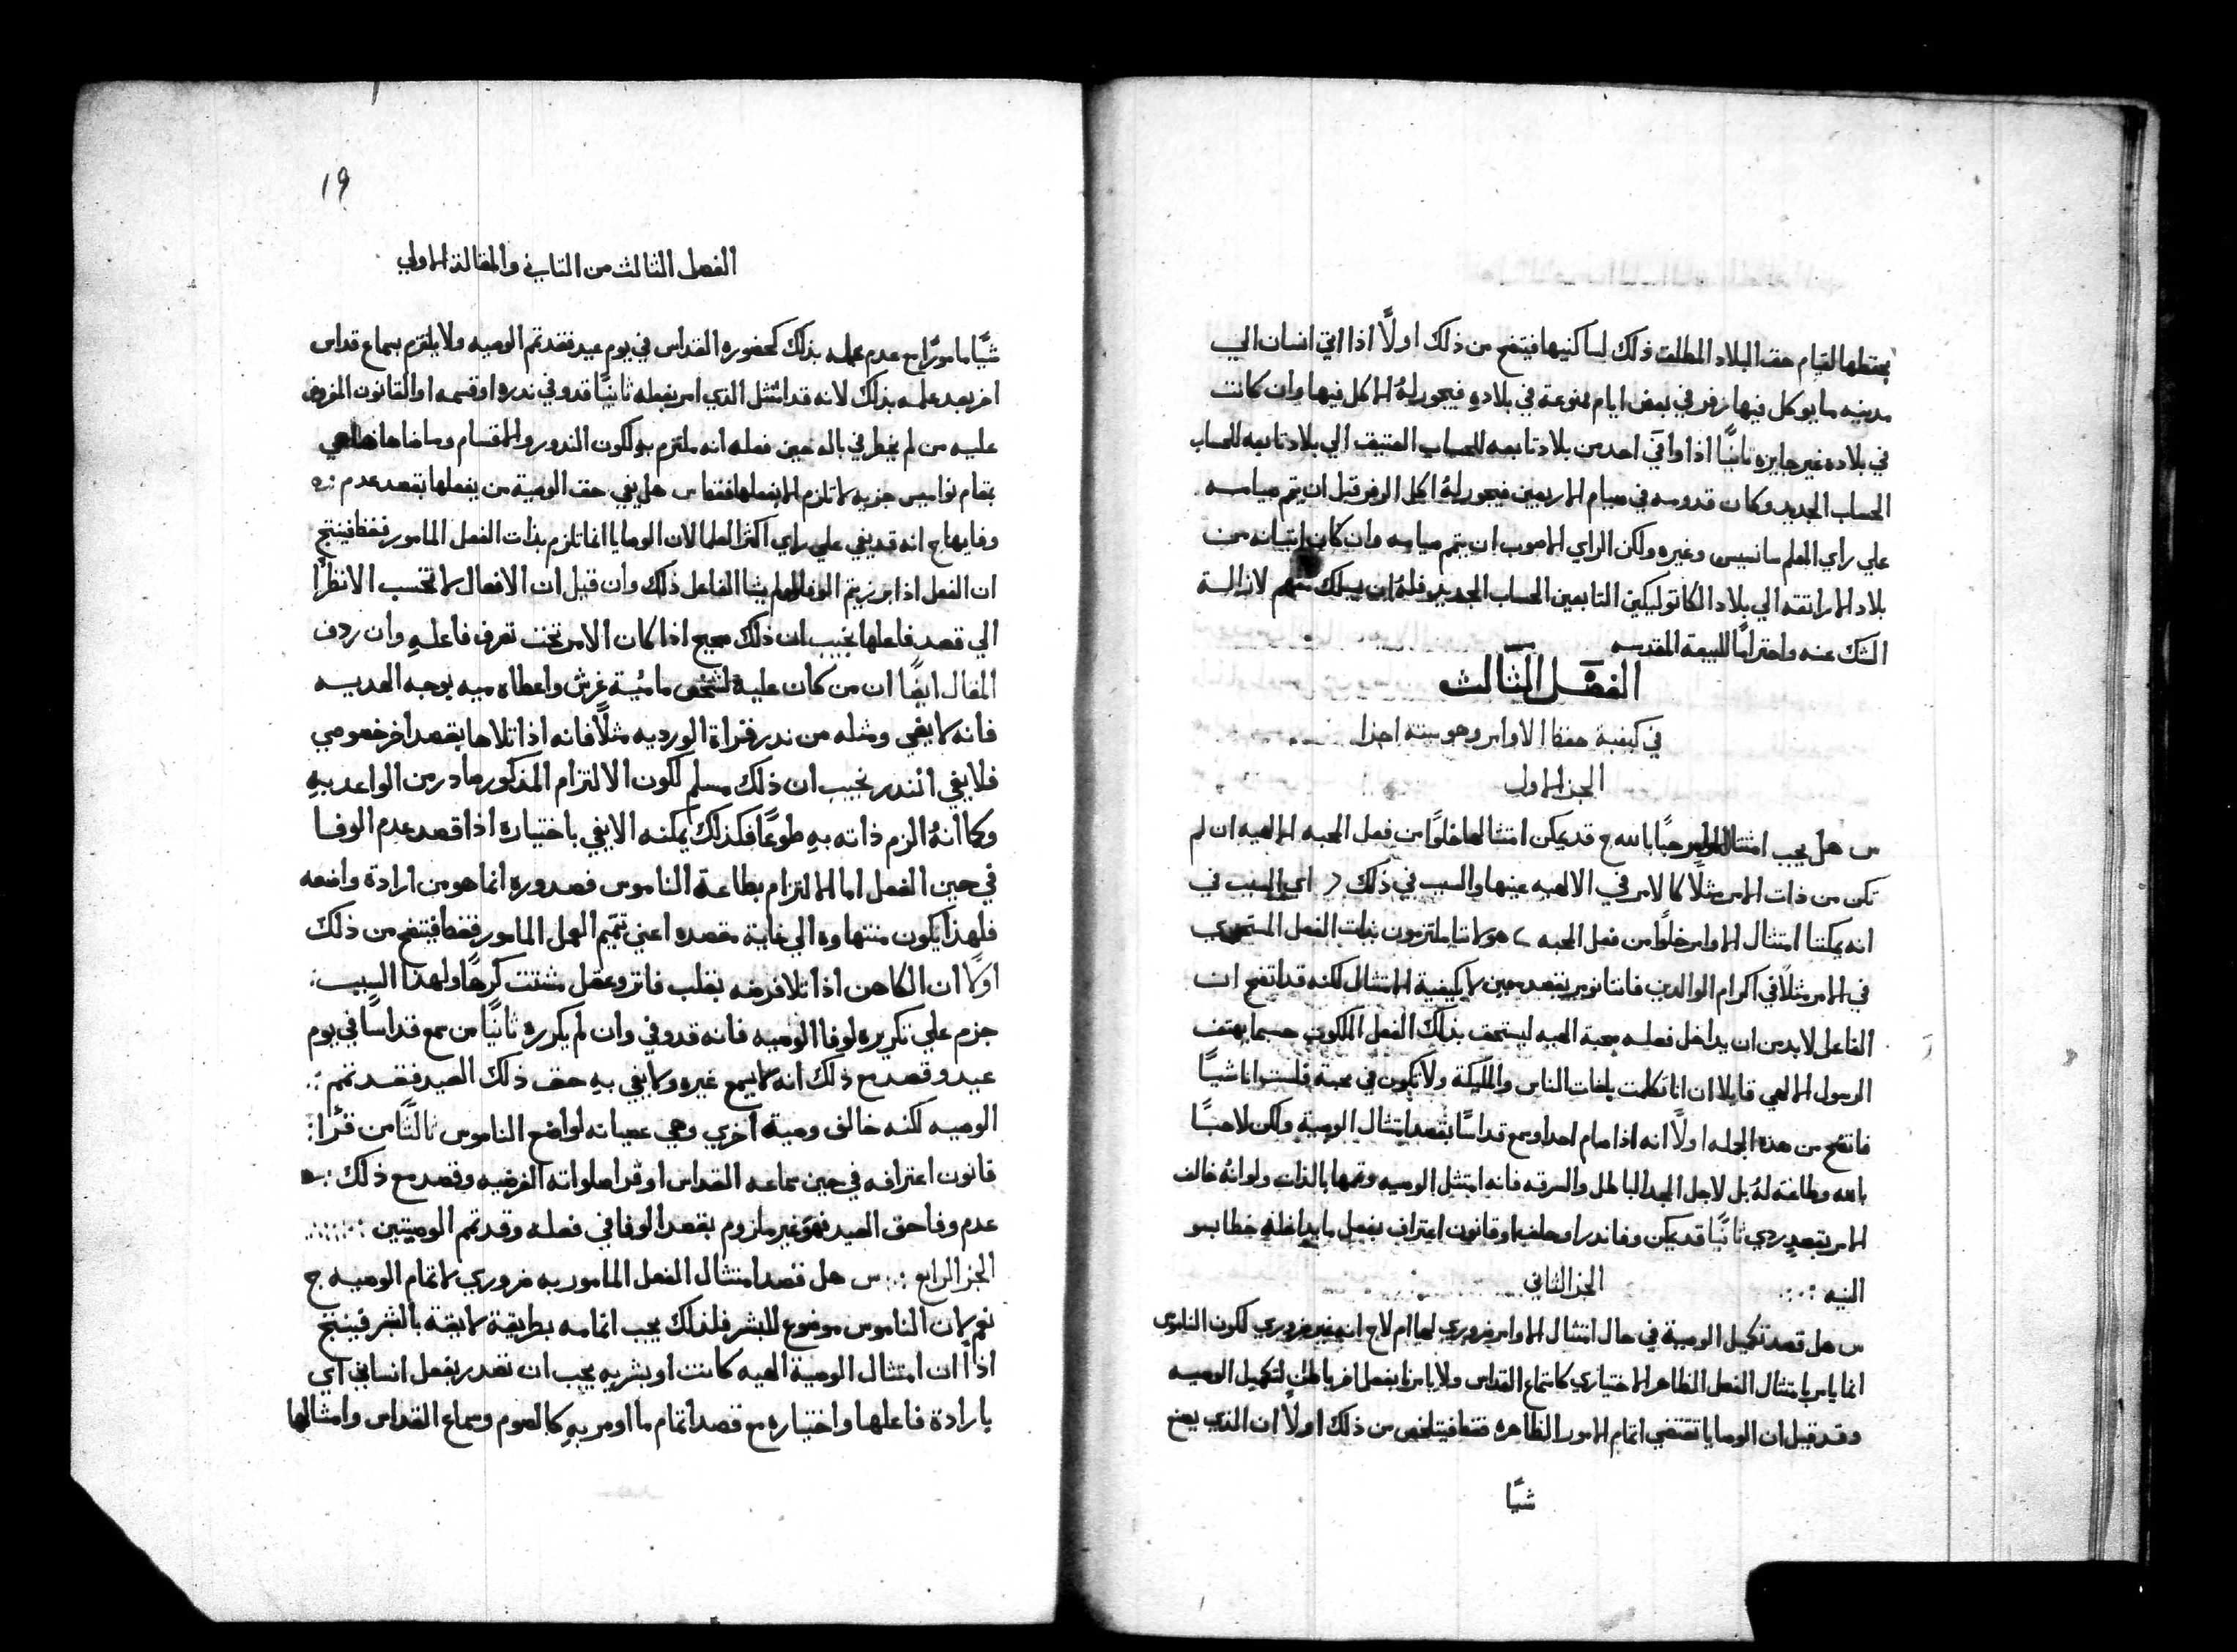 بحقطها القيام حقت البلاد المطلقت ذلك لساكنيها فيتضح من ذلك اولاً اذا اتي انسان الي
مدينه ما يوكل فيها زفر في بعض ايام ممنوعة في بلاده فيجوز لهُ الاكل فيها وان كانت
في بلاده غير جايزه ثانيًا اذا وافي احد من بلاد تابعه للحساب العتيق الي بلاد تابعه للحساب
الحساب الجديد وكان قدومه في صيام الاربعين فيجوز لهُ اكل الزفر قبل ان يتم صيامه
علي راي المعلم سانسيس وغيره ولكن الراي الاصوب ان يتم صيامه وان كان اتيانه من
بلاد الاراتقه الي بلاد الكاتوليكين التابعين الحساب الجديد فلهُ ان يسلك معهم لازالة
الشك عنه واحترامًا للبيعة المقدسه
الفصل الثالث
في كيفية حفظ الاوامر وهو ستة اجزا
الجز الاول
س هل يجب امتثال الاوامر حبًا بالله ج قد يمكن امتثالها خلوًا من فعل المحبه الالهيه ان لم
تكن من ذات الامر مثلًا كالامر في الالهيه عينها والسبب في ذلك ( اي السبب في
انه يمكننا امتثال الاوامر خلوًا من فعل المحبه ) هو لاننا ملتزمون بذات الفعل المستحوي
في الامر مثلًا في اكرام الوالدين فاننا نومر بقصد معين لا بكيفية الامتثال لكنه قد اتضح ان
الفاعل لا بد من ان يداخل فعله محبة الهيه ليستحق بذلك الفعل الملكوت حسبما يهتف
الرسول الالهي قايلا ان انا تكلمت بلغات الناس والمليكة ولا تكون في محبة فلست انا شيًا
فاتضح من هذه الجمله اولًا انه اذا صام احد او سمع قداسًا بقصد امتثال الوصية ولكن لا حبًا
بالله وطاعة لهُ بل لاجل المجد الباطل والسرقه فانه امتثل الوصيه وتمها بالذات ولو انهُ خالف
الامر بقصدٍ ردي ثانيًا قد يمكن وفا نذر او حلف او قانون اعتراف بفعل ما يداخله خطا بسو
النيه
الجز الثاني
س هل قصد تكميل الوصية في حال امتثال الاوامر ضروري لها ام لا ج انه غير ضروري لكون الناموس
انما يامر بامتثال الفعل الظاهر الاختياري كاستماع القداس ولا يامرنا بفعل اخر باطن لتكميل الوصيه
وقد قيل ان الوصايا تقتضي اتمام الامور الظاهره فقط فيتلخص من ذلك اولًا ان الذي يصنع
شيًا
١٩
الفصل الثالث من الثاني والمقالة الاولي
شيًا مامورًا مع عدم علمه بذلك كحضوره القداس في يوم عيد فقد تم الوصيه ولا يلتزم بسماع قداس
اخر بعد علمه بذلك لانه قد امتثل الذي امر بفعله ثانيًا قد وفي نذره او قسمه او القانون المفروض
عليه من لم يخطر في باله حين فعله انه ملتزم به لكون الندور والاقسام وما ضاهاها هي
بمقام نواميس جزيه لا تلزم الا بفعلها فقط س هل يفي حق الوصية من يفعلها بقصد عدم
وفايها ج انه قد يفي علي راي اكثر العلما لان الوصايا انما تلزم بذات الفعل المامور فقط فينتج
ان الفعل اذا برز يتم الوفا ولو لم يشا الفاعل ذلك وان قيل ان الافعال لا تحسب الا نظرًا
الي قصد فاعلها نجيب ان ذلك صحيح اذا كان الامر تحت تصرف فاعلهِ وان ردف
المقال ايضًا ان من كان عليه لشخص ما مُية غرش واعطاه ميه بوجه الهديه
فانه لا يفي ومثله من نذر قراة الورديه مثلًا فانه اذا تلاها بقصد اخر خصومي
فلا يفي النذر نجيب ان ذلك مسلم لكون الالتزام المذكور صادر من الواعد بهِ
وكما انهُ الزم ذاته بهِ طوعًا فكذلك يمكنه الا يفي باختياره اذا قصد عدم الوفا
في حين الفعل اما الالتزام بطاعة الناموس فصدوره انما هو من ارادة واضعه
فلهذا يكون منتهاوه الي غاية مقصده اعني تتميم العمل المامور فقط فيتضح من ذلك
اولًا ان الكاهن اذا تلا فرضه بقلب فاتر وعقل مشتت كرهًا ولهذا السبب
جزم علي تكريره لوفا الوصيه فانه قد وفي وان لم يكرره ثانيًا من سمع قداسًا في يوم
عيد وقصد مع ذلك انه لا يسمع غيره ولا يفي بهِ حق ذلك العيد فقد تمم
الوصيه لكنه خالف وصية اخري وهي عصيانه لواضع الناموس ثالثًا من قرا
قانون اعترافه في حين سماعه القداس او قرا صلواته الفرضيه وقصد مع ذلك
عدم وفا حق العيد فهو غير ملزوم بقصد الوفا في فعله وقد تمم الوصيتين
الجز الرابع س هل قصد امتثال الفعل المامور به ضروري لاتمام الوصيه ج
نعم لان الناموس موضوع للبشر فلذلك يجب اتمامه بطريقة لايقة بالبشر فينتج
اذًا ان امتثال الوصية الهيه كانت او بشريه يجب ان تصدر بفعل انساني اي
بارادة فاعلها واختياره مع قصد اتمام ما اومر بهِ كالصوم وسماع القداس وامثالها